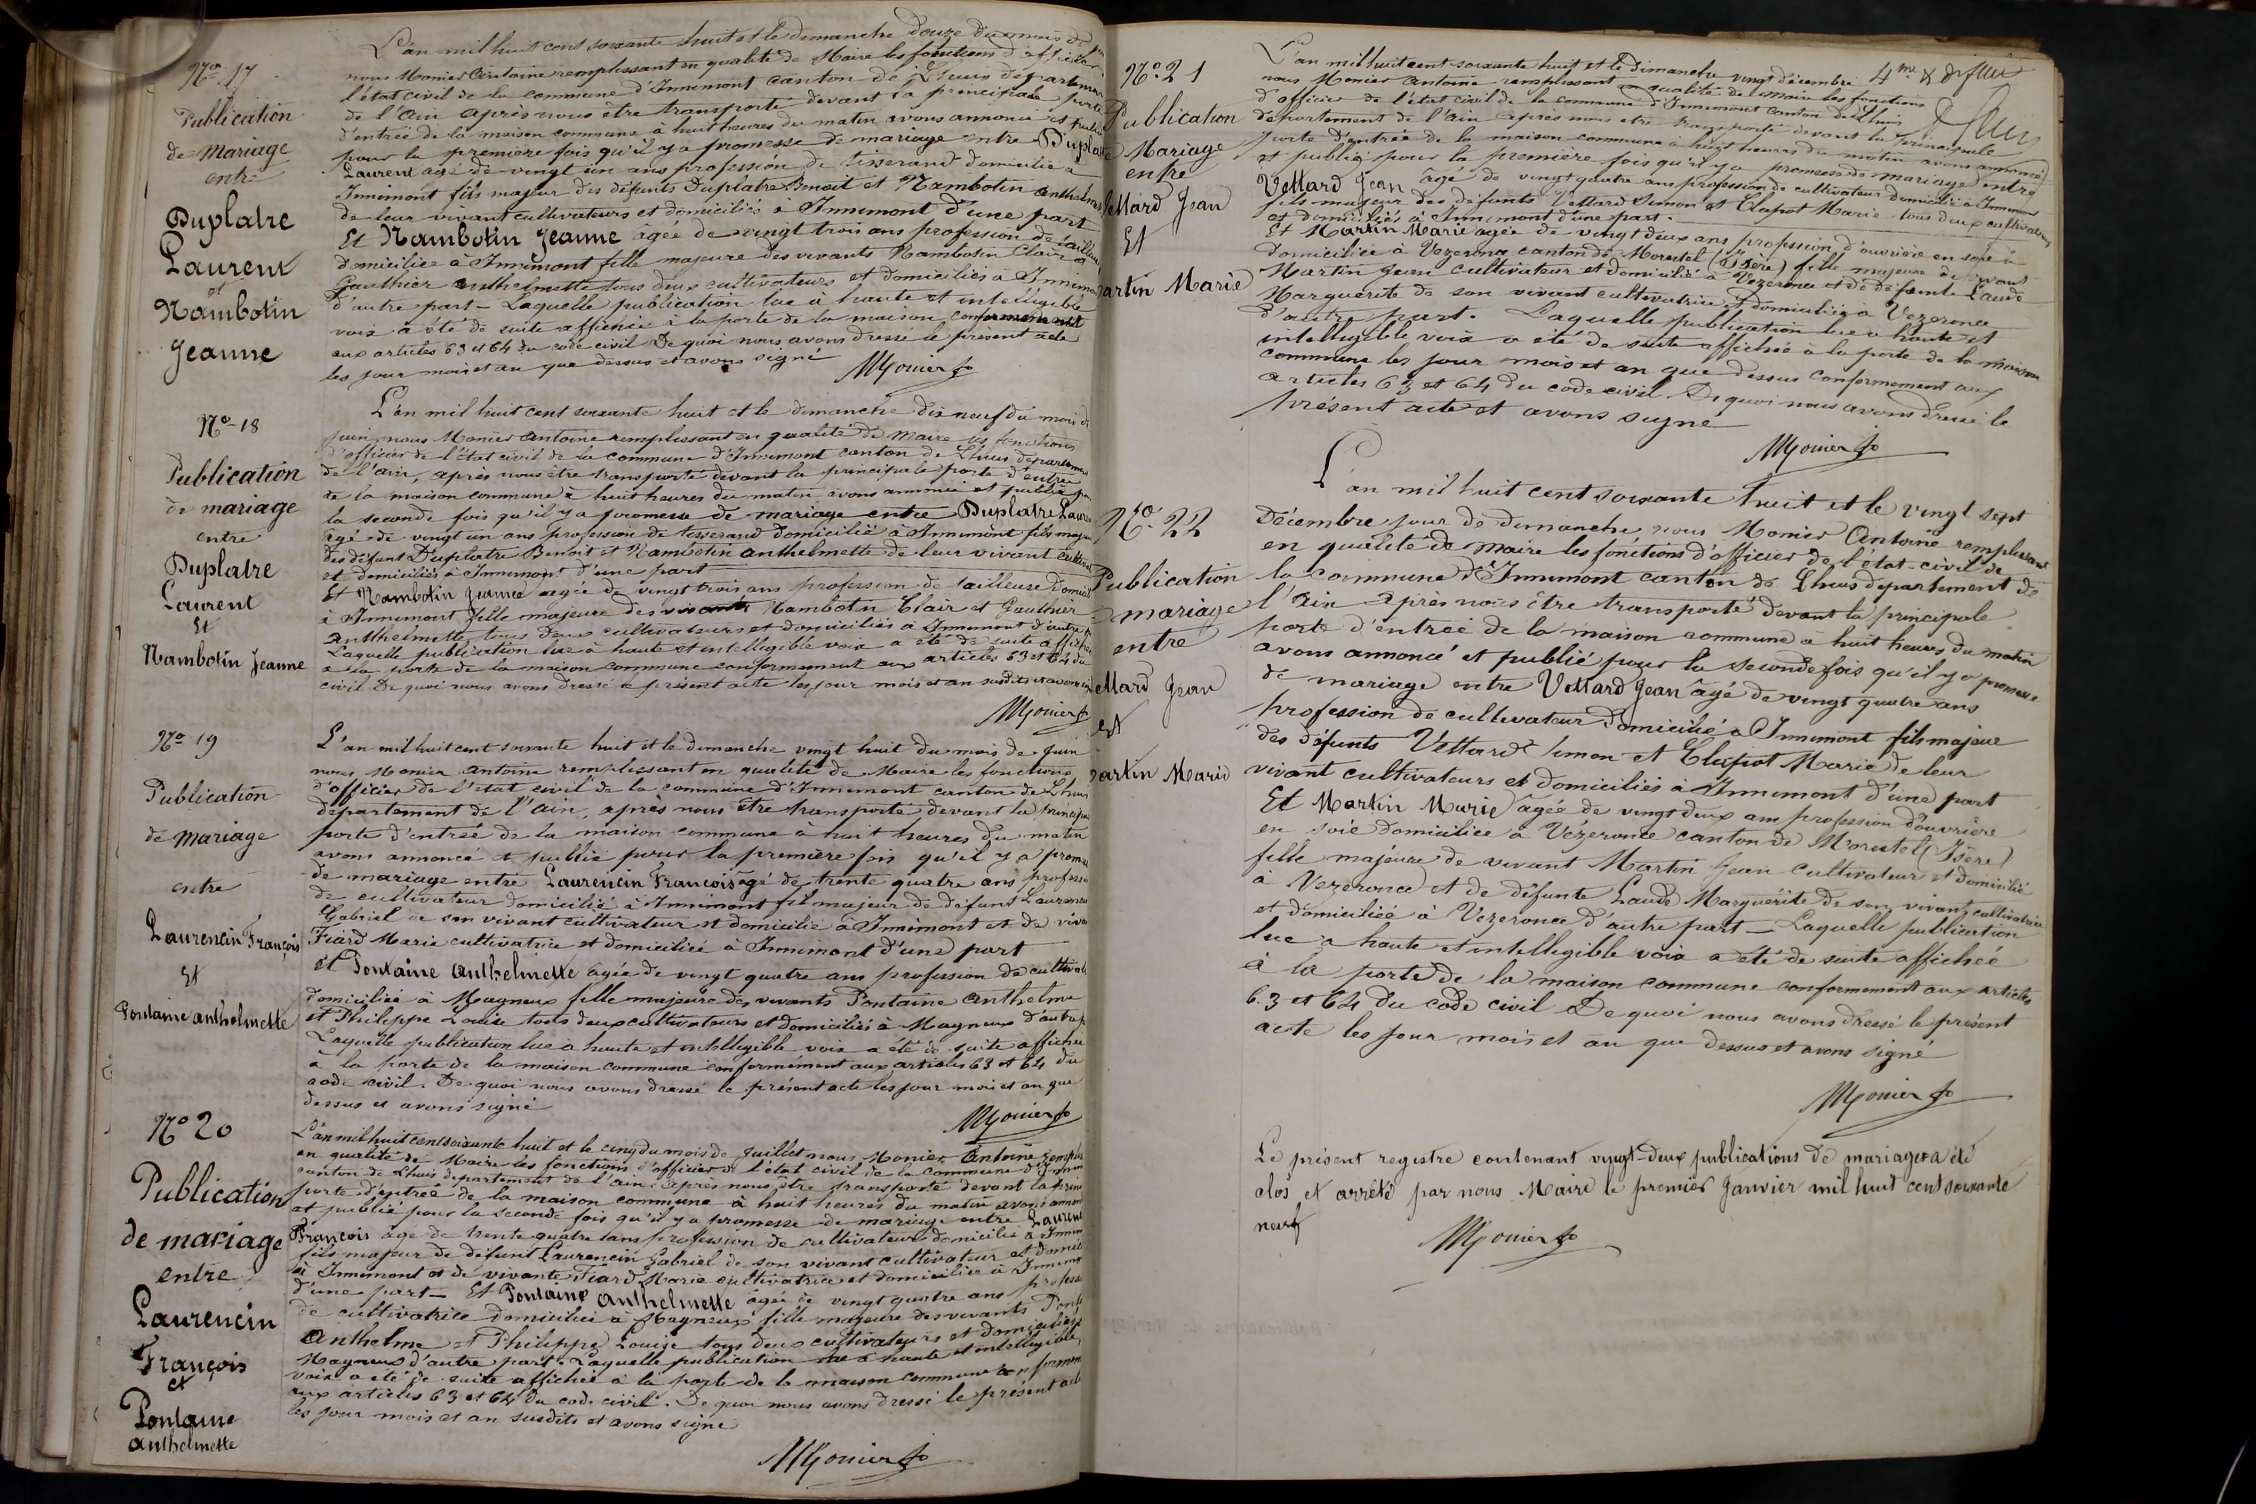 No 17
Publication
de Mariage
entre
Duplatre
Laurent
et
Nambotin
Jeanne
L'an mil huit cent soixante huit et le dimanche douze du mois de
nous Monier Antoine remplissant en qualité de Maire les fonctions d'officier
l'état civil de la commune d'Innimont canton de Lhuis département
de l'Ain après nous être transporté devant la principale porte
d'entrée de la maison commune à huit heures du matin avons annoncé et publié
pour la première fois qu'il y a promesse de mariage entre Duplatre
Laurent agé de vingt un ans profession de tisserand domicilié à
Innimont fils majeur des défunts Duplatre Benoit et Nambotin Anthelmette
de leur vivant cultivateurs et domiciliés à Innimont d'une part
Et Nambotin Jeanne âgée de vingt trois ans profession de tailleuse
domiciliée à Innimont fille majeure des vivants Nambotin Clair et
Gauthier Anthelmette tous deux cultivateurs et domiciliés à Innimont
d'autre part – Laquelle publication lue à haute et intelligible
voix a été de suite affichée à la porte de la maison conformément
aux articles 63 et 64 du code civil De quoi nous avons dressé le présent acte
les jour mois et an que dessus et avons signé
Monier
No 18
Publication
de mariage
entre
Duplatre
Laurent
Et
Nambotin Jeanne
L'an mil huit cent soixante huit et le dimanche dix neuf du mois de
juin nous Monier Antoine remplissant en qualité de Maire les fonctions
d'officier de l'état civil de la commune d'Innimont canton de Lhuis département
de l'ain, après nous être transporté devant la principale porte d'entrée
de la maison commune à huit heures du matin avons annoncé et publié pour
la seconde fois qu'il y a promesse de mariage entre Duplatre Laurent
agé de vingt un ans profession de tisserand domicilié à Innimont fils majeur
des défunt Duplatre Benoit et Nambotin anthelmette de leur vivant cultivateurs
et domiciliés à Innimont d'une part
Et Nambotin Jeanne agée de vingt trois ans profession de tailleuse domiciliée
à Innimont fille majeure des vivants Nambotin Clair et Gauthier
Anthelmette tous deux cultivateurs et domiciliés à Innimont d'autre part
Laquelle publication lue à haute et intelligible voix a été de suite affichée
à la porte de la maison commune conformément aux articles 63 et 64 du
civil De quoi nous avons dressé le présent acte les jour mois et an susdits et avons signé
Monier
No 19
Publication
de Mariage
entre
Laurencin François
Et
Pontaine anthelmette
L'an mil huit cent soixante huit et le dimanche vingt huit du mois de Juin
nous Monier Antoine remplissant en qualité de Maire les fonctions
d'officier de l'état civil de la commune d'Innimont canton de Lhuis
département de l'Ain, après nous être transporté devant la principale
porte d'entrée de la maison commune à huit heures du matin
avons annoncé et publié pour la première fois qu'il y a promesse
de mariage entre Laurencin François âgé de trente quatre ans profession
de cultivateur domicilié à Innimont fils majeur de défunt Laurencin
Gabriel de son vivant cultivateur et domicilié à Innimont et de vivante
Fiard Marie cultivatrice et domiciliée à Innimont d'une part
et Pontaine Anthelmette âgée de vingt quatre ans profession de cultivatrice
domiciliée à Magneux fille majeure des vivants Pontaine Anthelme
et Philippe Louise tous deux cultivateurs et domiciliés à Magneux d'autre part
Laquelle publication lue à haute et intelligible voix a été de suite affichée
à la porte de la maison commune conformément aux articles 63 et 64 du
code civil. De quoi nous avons dressé le présent acte les jour mois et an que
dessus et avons signé
Monier
No 20
Publication
de mariage
entre
Laurencin
François
et
Pontaine
Anthelmette
L'an mil huit cent soixante huit et le cinq du mois de Juillet nous Monier Antoine remplissant
en qualité de Maire les fonctions d'officier de l'état civil de la commune d'Innimont
canton de Lhuis département de l'ain. après nous être transporté devant la principale
porte d'entrée de la maison commune à huit heures du matin avons annoncé
et publié pour la seconde fois qu'il y a promesse de mariage entre Laurencin
François âgé de trente quatre ans profession de cultivateur domicilié à Innimont
fils majeur de défunt Laurencin Gabriel de son vivant cultivateur et domicilié
à Innimont et de vivante Fiard Marie cultivatrice et domiciliée à Innimont
d'une part – Et Pontaine Anthelmette âgée de vingt quatre ans profession
de cultivatrice domiciliée à Magneux fille majeure des vivants Pontaine
Anthelme et Philippe Louise tous deux cultivateurs et domiciliés
Magneux d'autre part. Laquelle publication lue à haute et intelligible
voix a été de suite affichée à la porte de la maison commune conformément
aux articles 63 et 64 du code civil. De quoi nous avons dressé le présent acte
les jour mois et an susdits et avons signé
Monier
No 21
Publication
de Mariage
entre
Vettard Jean
Et
Martin Marie
L'an mil huit cent soixante huit et le Dimanche vingt décembre
nous Monier Antoine remplissant en qualité de Maire les fonctions
d'officier de l'état civil de la commune d'Innimont canton de Lhuis
département de l'ain après nous être transporté devant la principale
porte d'entrée de la maison commune à huit heures du matin avons annoncé
et publié pour la première fois qu'il y a promesse de mariage entre
Vettard Jean âgé de vingt quatre ans profession de cultivateur domicilié à Innimont
fils majeur des défunts Vettard Simon et Clapot Marie tous deux cultivateurs
et domiciliés à Innimont d'une part.
Et Martin Marie agée de vingt deux ans profession d'ouvrière en soie
domiciliée à Vezeronce canton de Morestel (Isère) fille majeure de vivant
Martin Jean cultivateur et domicilié à Vezeronce et de défunte Laude
Marguerite de son vivant cultivatrice et domiciliée à Vezeronce
d'autre part. Laquelle publication lue à haute et
intelligible voix a été de suite affichée à la porte de la maison
commune les jour mois et an que dessus conformément aux
articles 63 et 64 du code civil De quoi nous avons dressé le
présent acte et avons signé
Monier
4me &
No 22
Publication
de mariage
entre
Vettard Jean
et
Martin Marie
L'an mil huit cent soixante huit et le vingt sept
Décembre jour de dimanche, nous Monier Antoine remplissant
en qualité de Maire les fonctions d'officier de l'état-civil de
la commune d'Innimont canton de Lhuis département de
l'Ain Après nous être transporté devant la principale
porte d'entrée de la maison commune à huit heures du matin
avons annoncé et publié pour la seconde fois qu'il y a promesse
de mariage entre Vettard Jean âgé de vingt quatre ans
profession de cultivateur domicilié à Innimont fils majeur
des défunts Vettard Simon et Clapot Marie de leur
vivant cultivateurs et domiciliés à Innimont d'une part
Et Martin Marie âgée de vingt deux ans profession d'ouvrière
en soie domiciliée à Vézeronce canton de Morestel (Isère)
fille majeure de vivant Martin Jean cultivateur et domicilié
à Vezeronce et de défunte Laude Marguerite de son vivant cultivatrice
et domiciliée à Vezeronce d'autre part – Laquelle publication
lue à haute et intelligible voix a été de suite affichée
à la porte de la maison commune conformément aux articles
63 et 64 du code civil De quoi nous avons dressé le présent
acte les jour, mois et an que dessus et avons signé
Monier
Le présent registre contenant vingt-deux publications de mariages a été
clos et arrêté par nous Maire le premier Janvier mil huit cent soixante
neuf
Monier